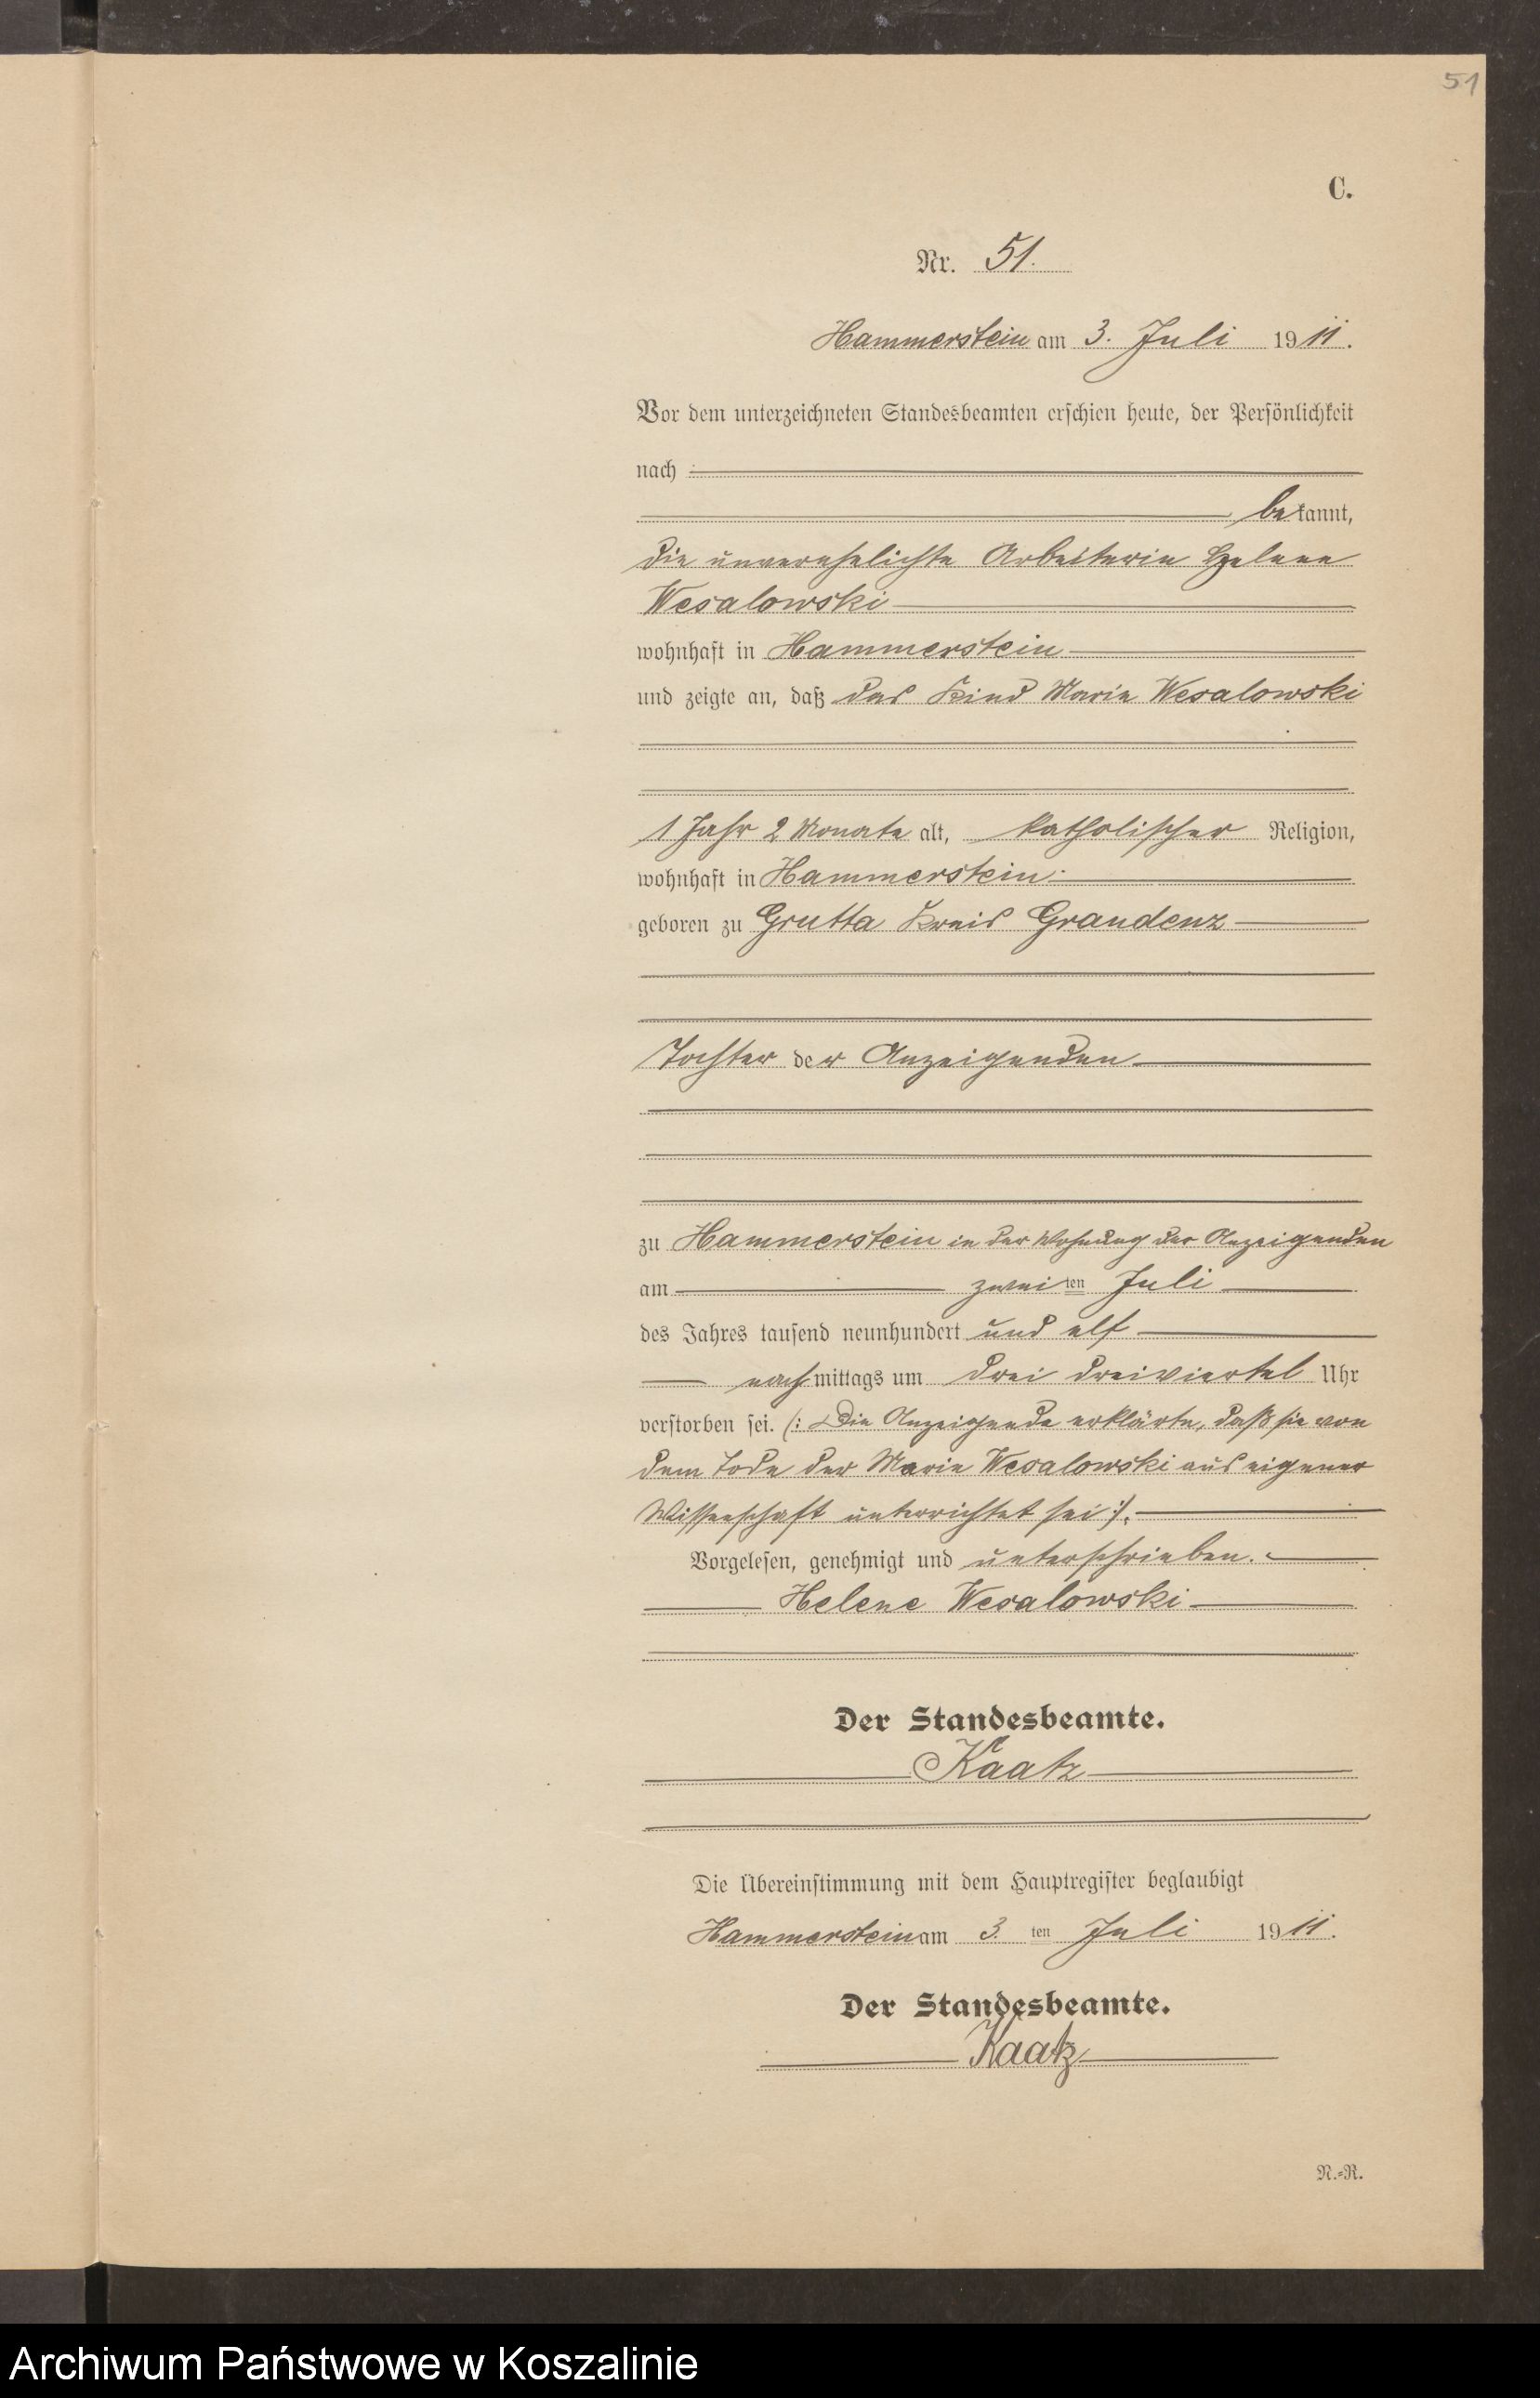 51
C.
Nr. 51.
Hammerstein am 3. Juli 1911.
Vor dem unterzeichneten Standesbeamten erschien heute, der Persönlichkeit
nach
bekannt,
die unverehelichte Arbeiterin Helene
Wesalowski
wohnhaft in Hammerstein
und zeigte an, daß das Kind Marie Wesalowski
1 Jahr 2 Monate alt, katholischer Religion,
wohnhaft in Hammerstein
geboren zu Grutta Kreis Graudenz
Tochter der Anzeigenden
zu Hammerstein in der Wohnung der Anzeigenden
am zweiten Juli
des Jahres tausend neunhundert und elf
nachmittags um drei dreiviertel Uhr
verstorben sei. (: Die Anzeigende erklärte, daß sie von
dem Tode der Marie Wesalowski aus eigener
Wissenschaft unterrichtet sei :).
Vorgelesen, genehmigt und unterschrieben.
Helene Wesalowski
Der Standesbeamte.
Kaatz
Die Übereinstimmung mit dem Hauptregister beglaubigt
Hammerstein am 3. ten Juli 1911.
Der Standesbeamte.
Kaatz
N.=R.
Archiwum Państwowe w Koszalinie